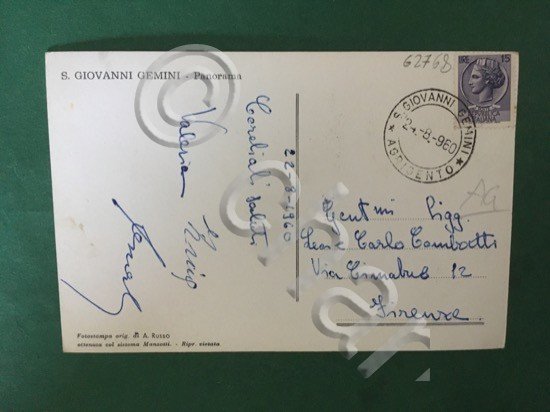 S. GIOVANNI GEMINI - Panorama
22-8-1960
Cordiali saluti
Enrico
Valeria
62768
LIRE 15
S. GIOVANNI GEMINI
24.-8.-960
* AGRIGENTO *
AG
Gent.mi Sigg.
e Carlo
Via 12
Firenze
Fotostampa orig. di A. RUSSO
ottenuta col sistema Manzutti. - Ripr. vietata